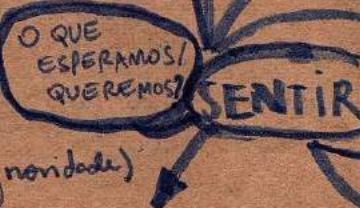 O QUE
ESPERAMOS/
QUEREMOS?
SENTIR
novidade)